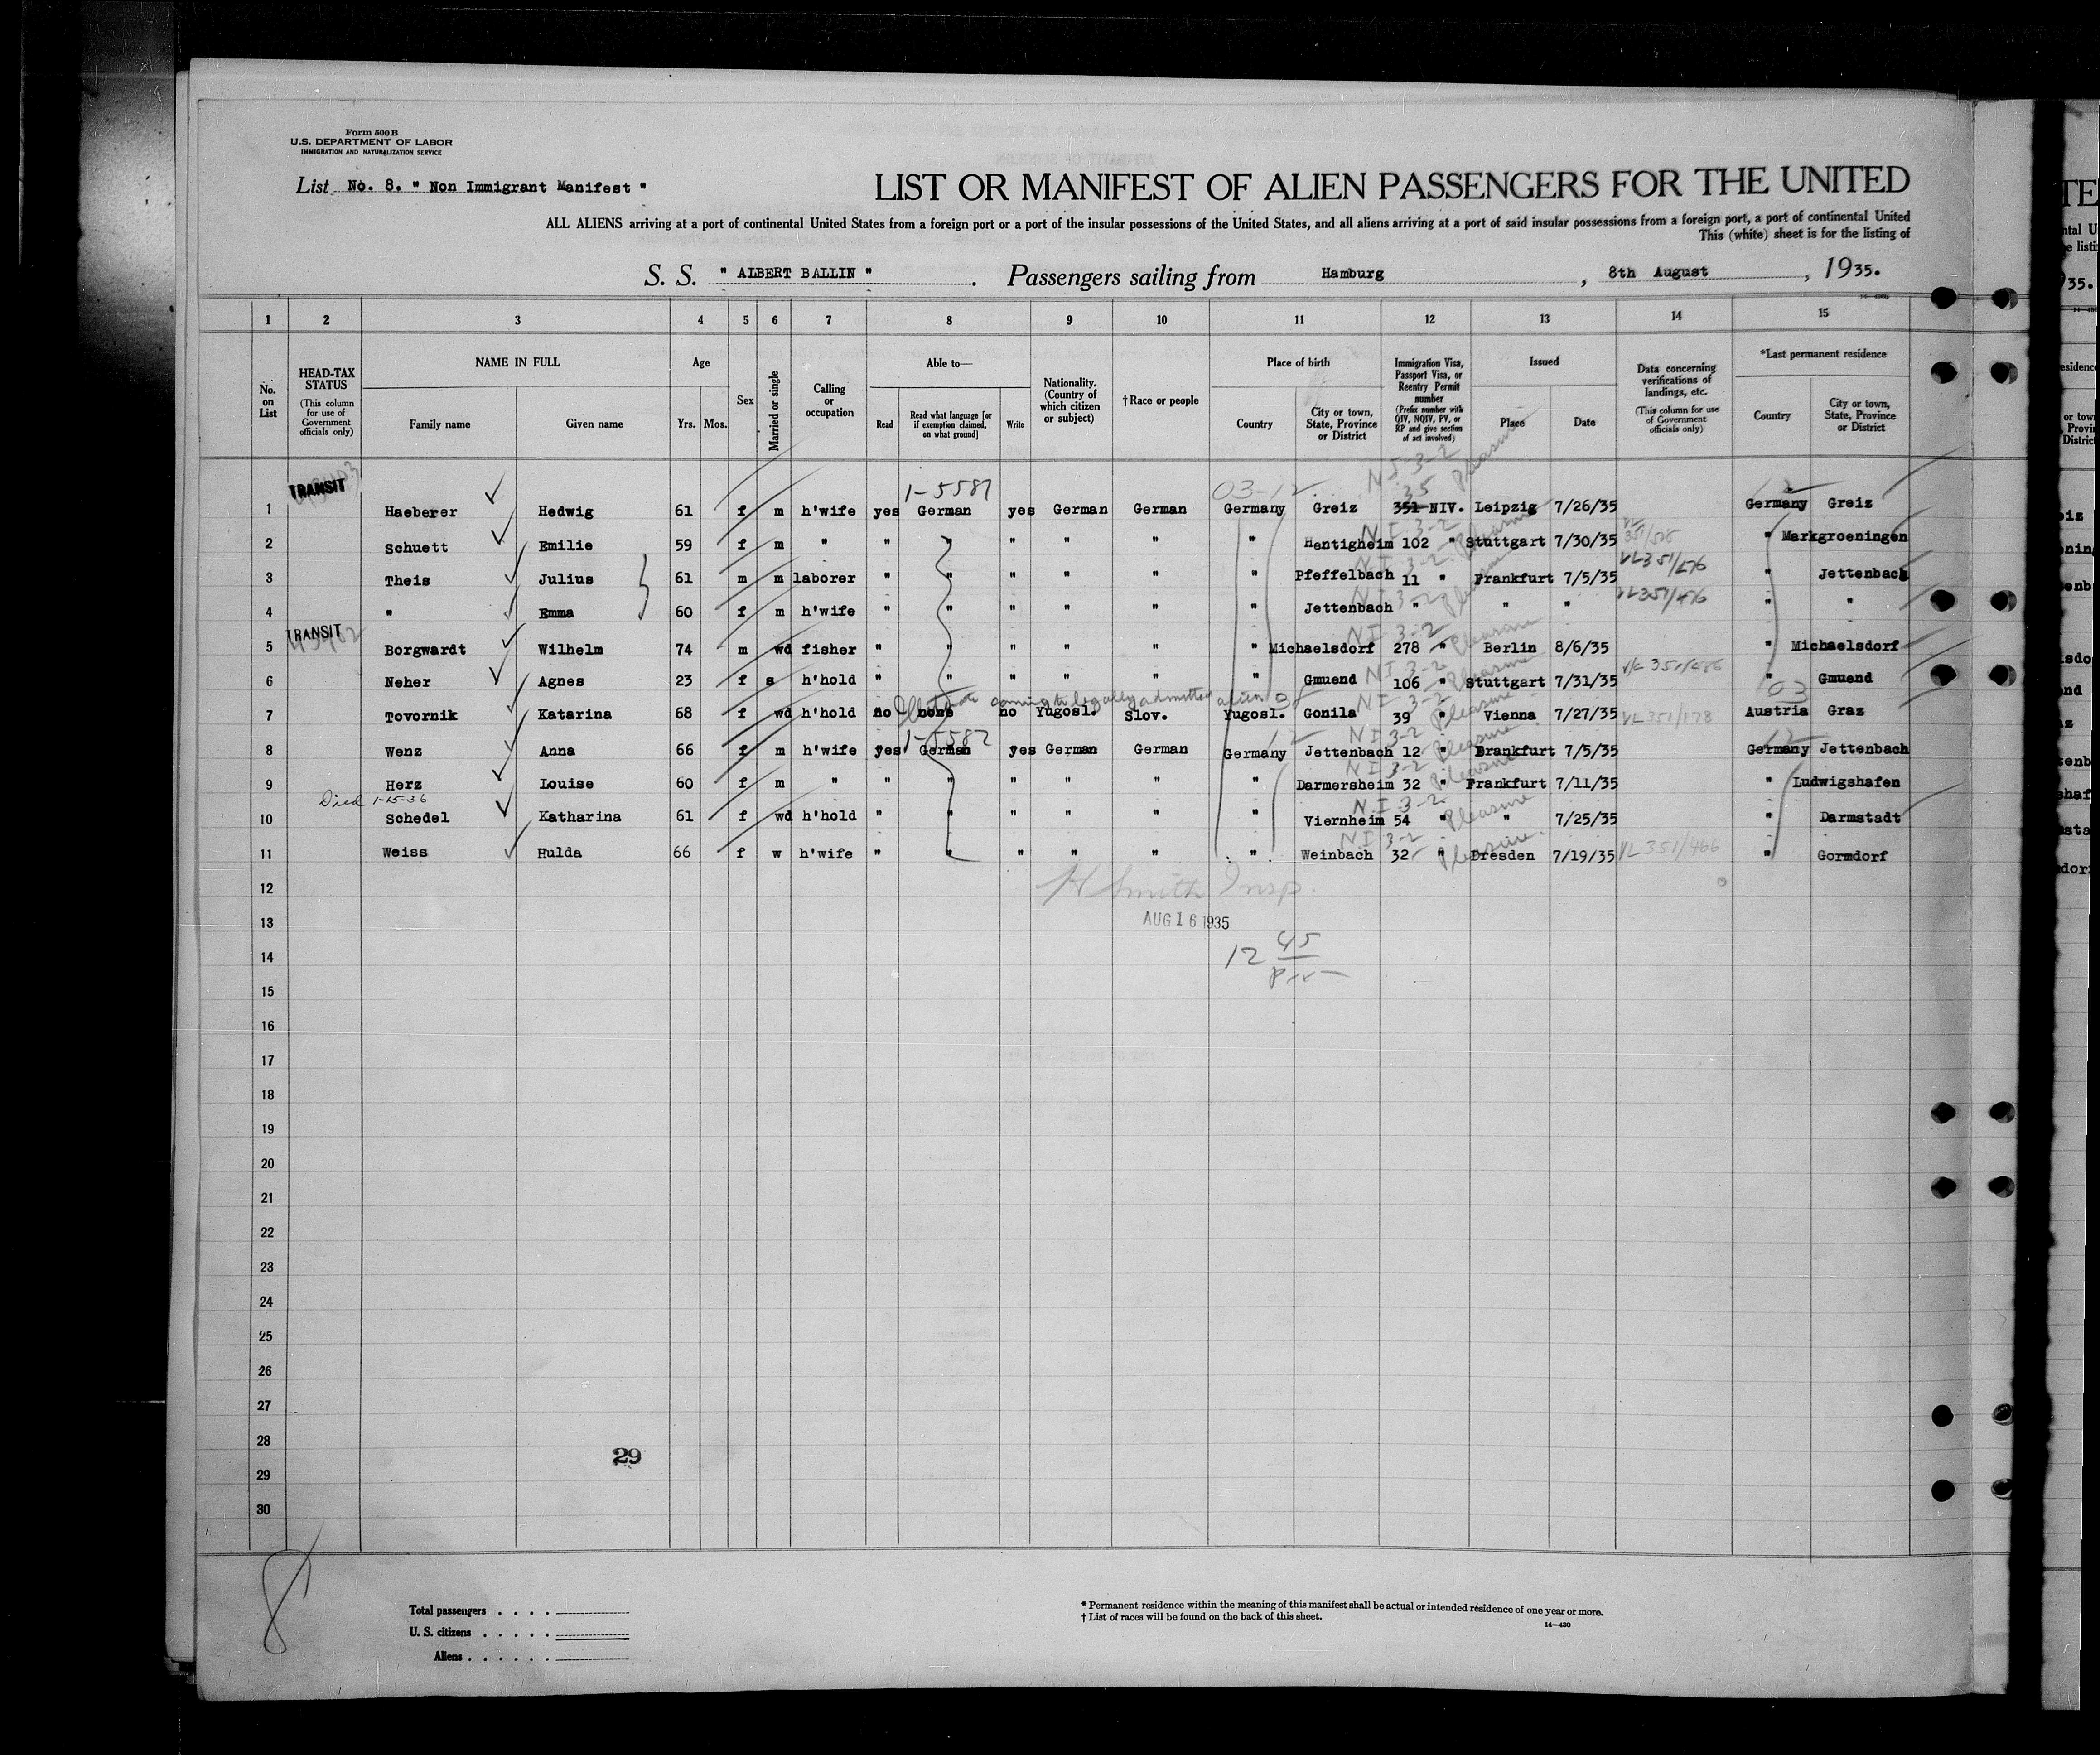 Form 500B
U.S. DEPARTMENT OF LABOR
IMMIGRATION AND NATURALIZATION SERVICE
List No. 8. " Non Immigrant Manifest "
LIST OR MANIFEST OF ALIEN PASSENGERS FOR THE UNITED
ALL ALIENS arriving at a port of continental United States from a foreign port or a port of the insular possessions of the United States, and all aliens arriving at a port of said insular possessions from a foreign port, a port of continental United
This (white) sheet is for the listing of
S. S. " ALBERT BALLIN ". Passengers sailing from Hamburg, 8th August, 1935.
1 2 3 4 5 6 7 8 9 10 11 12 13 14 15
No. on List
HEAD-TAX STATUS (This column for use of Government officials only)
NAME IN FULL Family name Given name
Age Yrs. Mos.
Sex
Married or single
Calling or occupation
Able to— Read Read what language [or if exemption claimed, on what ground] Write
Nationality. (Country of which citizen or subject)
†Race or people
Place of birth Country City or town, State, Province or District
Immigration Visa, Passport Visa, or Reentry Permit number (Prefix number with QIV, NQIV, PV, or RP and give section of act involved)
Issued Place Date
Data concerning verifications of landings, etc. (This column for use of Government officials only)
*Last permanent residence Country City or town, State, Province or District
TRANSIT 1-5587 03-12 NI 3-2 35 Pleasure 12
1 Haeberer Hedwig 61 f m h'wife yes German yes German German Germany Greiz 351 NIV. Leipzig 7/26/35 Germany Greiz
NI 3-2 Pleasure
2 Schuett Emilie 59 f m " " " " " " " Hentigheim 102 " Stuttgart 7/30/35 " Markgroeningen
NI 3-2 Pleasure VL351/476
3 Theis Julius 61 m m laborer " " " " " " Pfeffelbach 11 " Frankfurt 7/5/35 " Jettenbach
NI 3-2 Pleasure VL351/476
4 " Emma 60 f m h'wife " " " " " " Jettenbach " " " " "
TRANSIT NI 3-2 Pleasure
5 Borgwardt Wilhelm 74 m wd fisher " " " " " " Michaelsdorf 278 " Berlin 8/6/35 " Michaelsdorf
NI 3-2 Pleasure
6 Neher Agnes 23 f s h'hold " " " " " " Gmuend 106 " Stuttgart 7/31/35 " Gmuend
coming to legally admitted alien NI 3-2 Pleasure VL351/178 03
7 Tovornik Katarina 68 f wd h'hold no none no Yugosl. Slov. Yugosl. Gonila 39 " Vienna 7/27/35 Austria Graz
1-5587 12 NI 3-2 Pleasure 12
8 Wenz Anna 66 f m h'wife yes German yes German German Germany Jettenbach 12 " Frankfurt 7/5/35 Germany Jettenbach
NI 3-2 Pleasure
9 Herz Louise 60 f m " " " " " " " Darmersheim 32 " Frankfurt 7/11/35 " Ludwigshafen
Died 1-15-36 NI 3-2 Pleasure
10 Schedel Katharina 61 f wd h'hold " " " " " " Viernheim 54 " " 7/25/35 " Darmstadt
NI 3-2 Pleasure VL351/466
11 Weiss Hulda 66 f w h'wife " " " " " " Weinbach 32 " Dresden 7/19/35 " Gormdorf
12
H Smith Insp.
13
AUG 16 1935
14
12 45
15
16
17
18
19
20
21
22
23
24
25
26
27
28
29
29
30
8
Total passengers
U. S. citizens
Aliens
* Permanent residence within the meaning of this manifest shall be actual or intended residence of one year or more.
† List of races will be found on the back of this sheet.
14—430